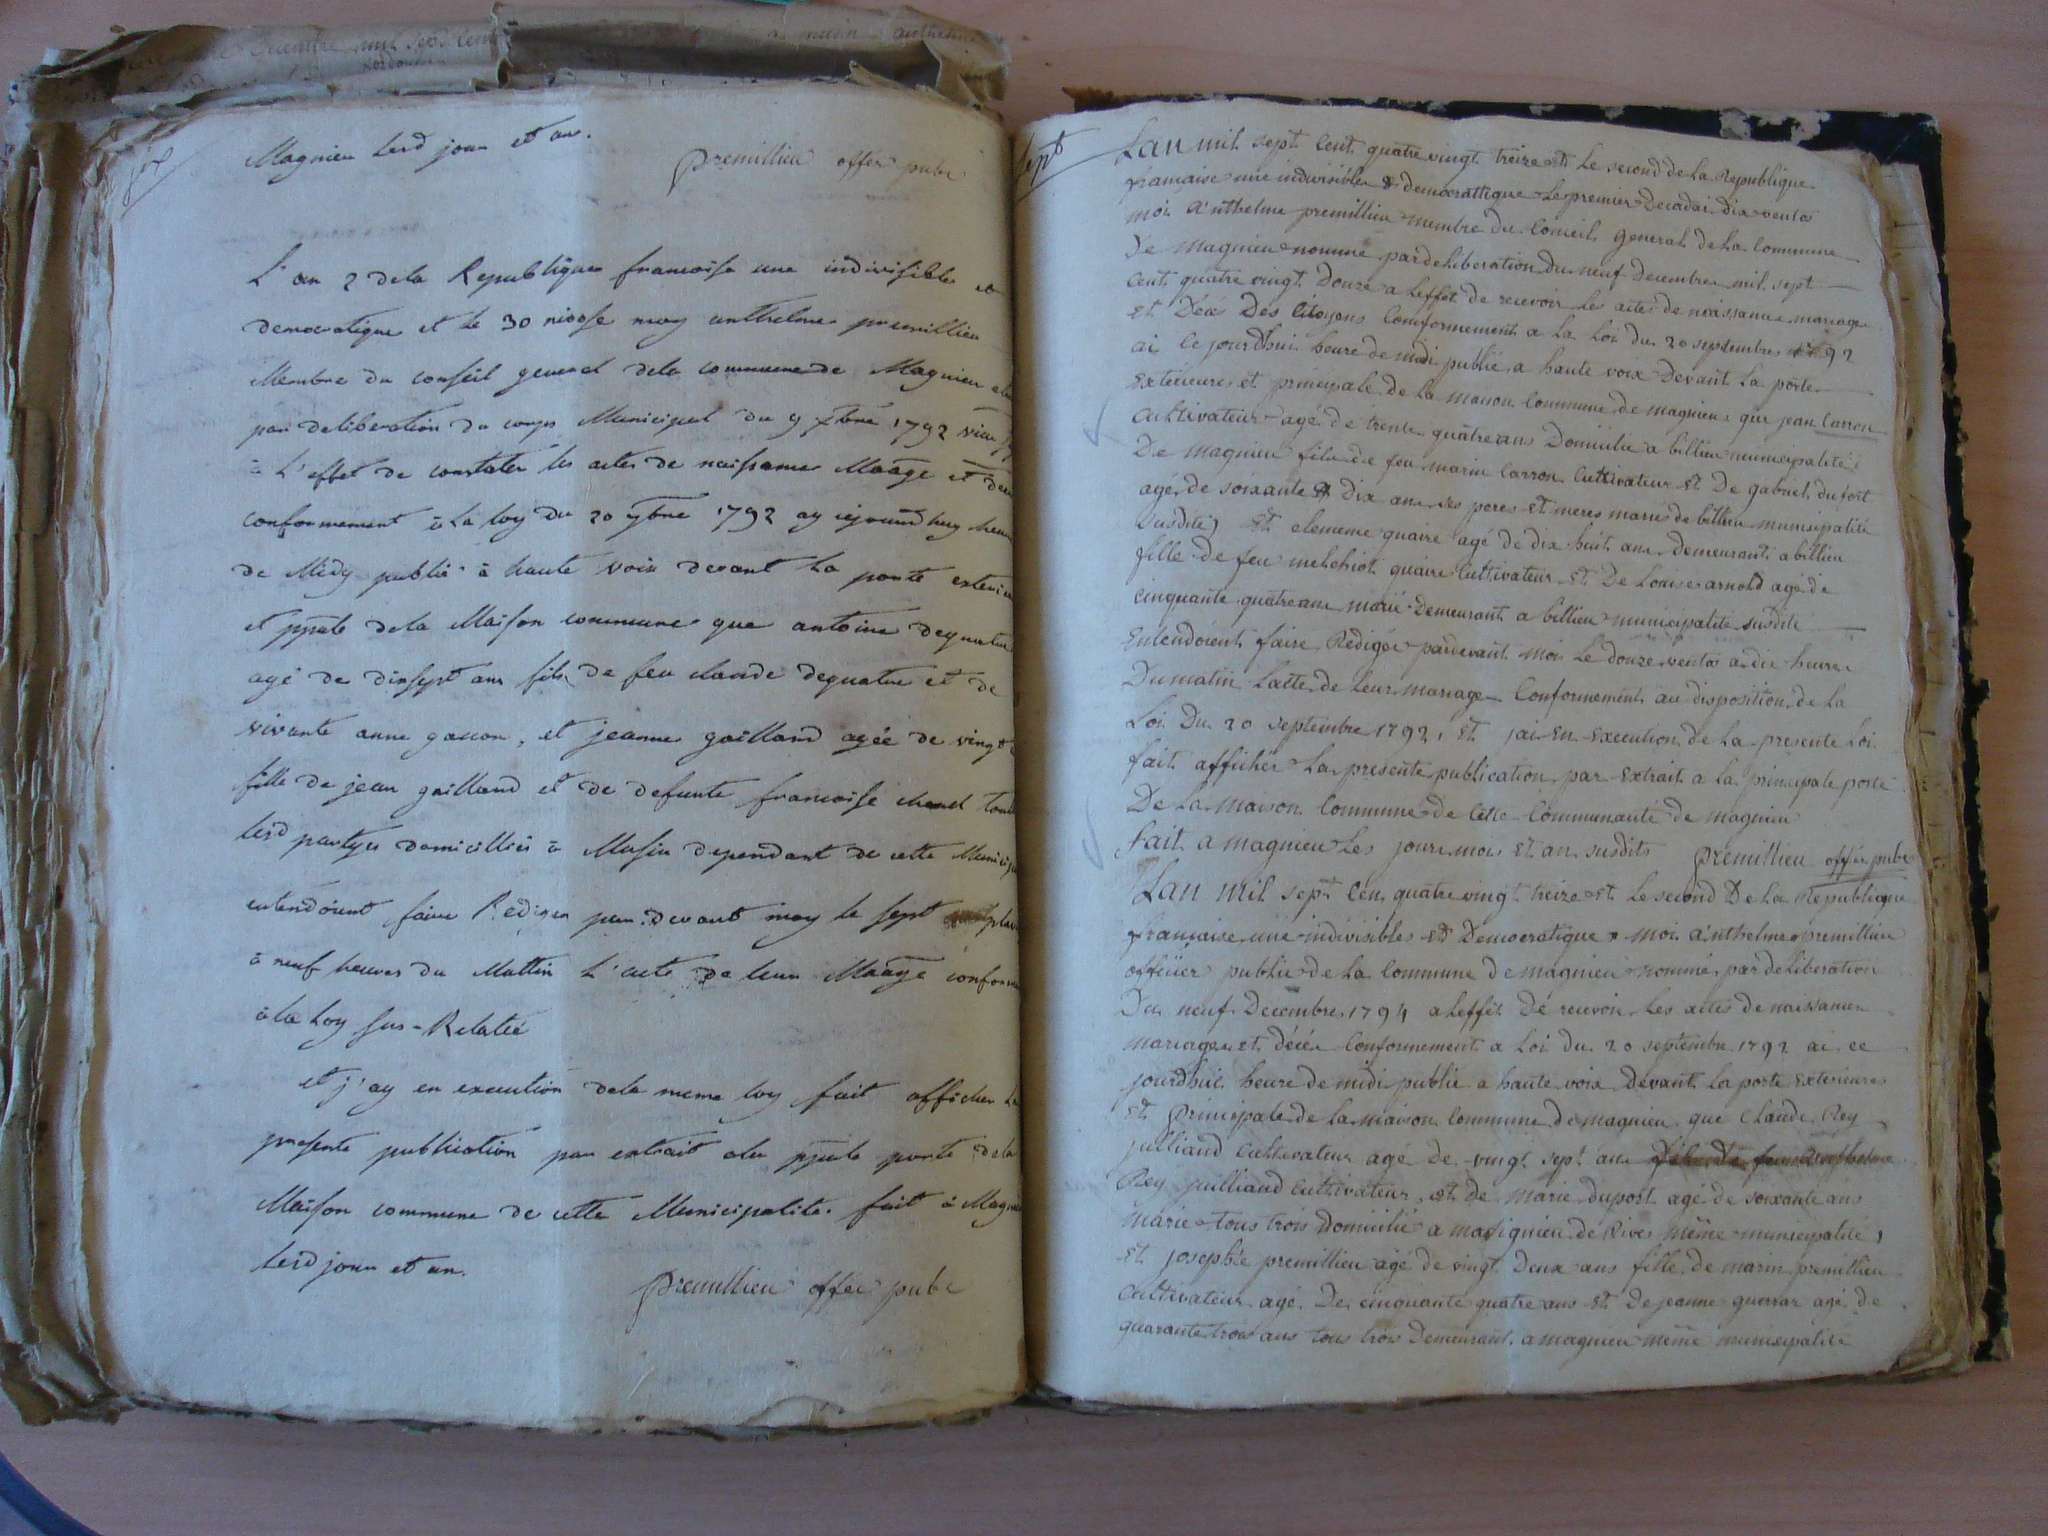 Magnieu lesd jour et an.
premillieu offer pube
L'an 2 dela Republique francoise une indivisible et
democratique et le 30 nivose moy anthelme premillieu
Membre du conseil general dela commune de Magnieu
par deliberation du corps Municipal du 9 xbre 1792
à L'effet de constater les actes de naissance Maage et
conformement à la loy du 20 7bre 1792 ay cejourdhuy heure
de Midy publié à haute voix devant la porte
et pple dela Maison commune que antoine
agé de dixsept ans fils de feu claude dequatre et de
vivante anne gacon, et jeanne gailland agée de vingt
fille de jean gailland et de defunte francoise
lesd partyes domicilliés à Musin dependant de cette
entendoient faire Rediger par devant moy le sept
à neuf heures du Mattin L'acte de leur Maage
à la Loy sus-Relatée
et j'ay en execution dela meme loy fait afficher
presente publication par extrait a la pple porte dela
Maison commune de cette Municipalité. fait à
Lesd jour et an.
premillieu offer pube
sept
Lan mil sept cent quatre vingt treize et le second de la Republique
francaise une indivisible & democrattique le premier Decadai dix ventos
moi Anthelme premillieu membre du Conseil general de la Commune
De magnieu nommé par deliberation du neuf Decembre mil sept
cent quatre vingt Douze a Leffet de recevoir les actes de naissance mariage
et Décé Des Citoyens Conformement a la Loi du 20 septembre 1792
ai ce jourdhui heure de midi publié a haute voix Devant la porte
exterieure et principale de la maison Commune de magnieu que jean Carron
Cultivateur agé de trente quatre ans Domicilié a billieu municipalité
De magnieu fils de feu marin Carron Cultivateur et De gabriel dufort
agé de soixante & dix ans ses peres et meres mariés de billieu municipalité
susdite et clemence quaire agé de dix huit ans demeurant a billieu
fille de feu melchiot quaire Cultivateur et De Louise arnold agé de
cinquante quatre ans marié Demeurant a billieu municipalité susdite
Entendoient faire Rediger pardevant moi Le douze ventos a dix heures
Du matin Lacte de Leur mariage Conformement au disposition de la
Loi Du 20 septembre 1792, et jai en execution de La presente Loi
fait afficher La presente publication par extrait a la principale porte
De La maison Commune de Cette Communauté de magnieu
fait a magnieu Les jour mois et an susdits premillieu offer pube
Lan mil sept Cen quatre vingt treize et Le second De La Republique
francaise une indivisible et Democratique & moi Anthelme premillieu
officier public de La Commune De magnieu nommé par deliberation
Du neuf Decembre 1794 a Leffet De recevoir Les actes de naissance
mariage et décé Conformement a Loi du 20 septembre 1792 ai ce
jourdhui heure de midi publié a haute voix Devant La porte Exterieure
et principale de La maison Commune De magnieu que Claude Rey
julliand Cultivateur agé de vingt sept ans fils de feu Anthelme
Rey juilliand Cultivateur et de marie dupost agé de soixante ans
marie tous trois Domicilié a massignieu de Rives même municipalité,
et josephte premillieu agé de vingt Deux ans fille de marin premillieu
Cultivateur agé De cinquante quatre ans et De jeanne guerrar agé De
quarante trois ans tous trois Demeurant a magnieu même municipalité